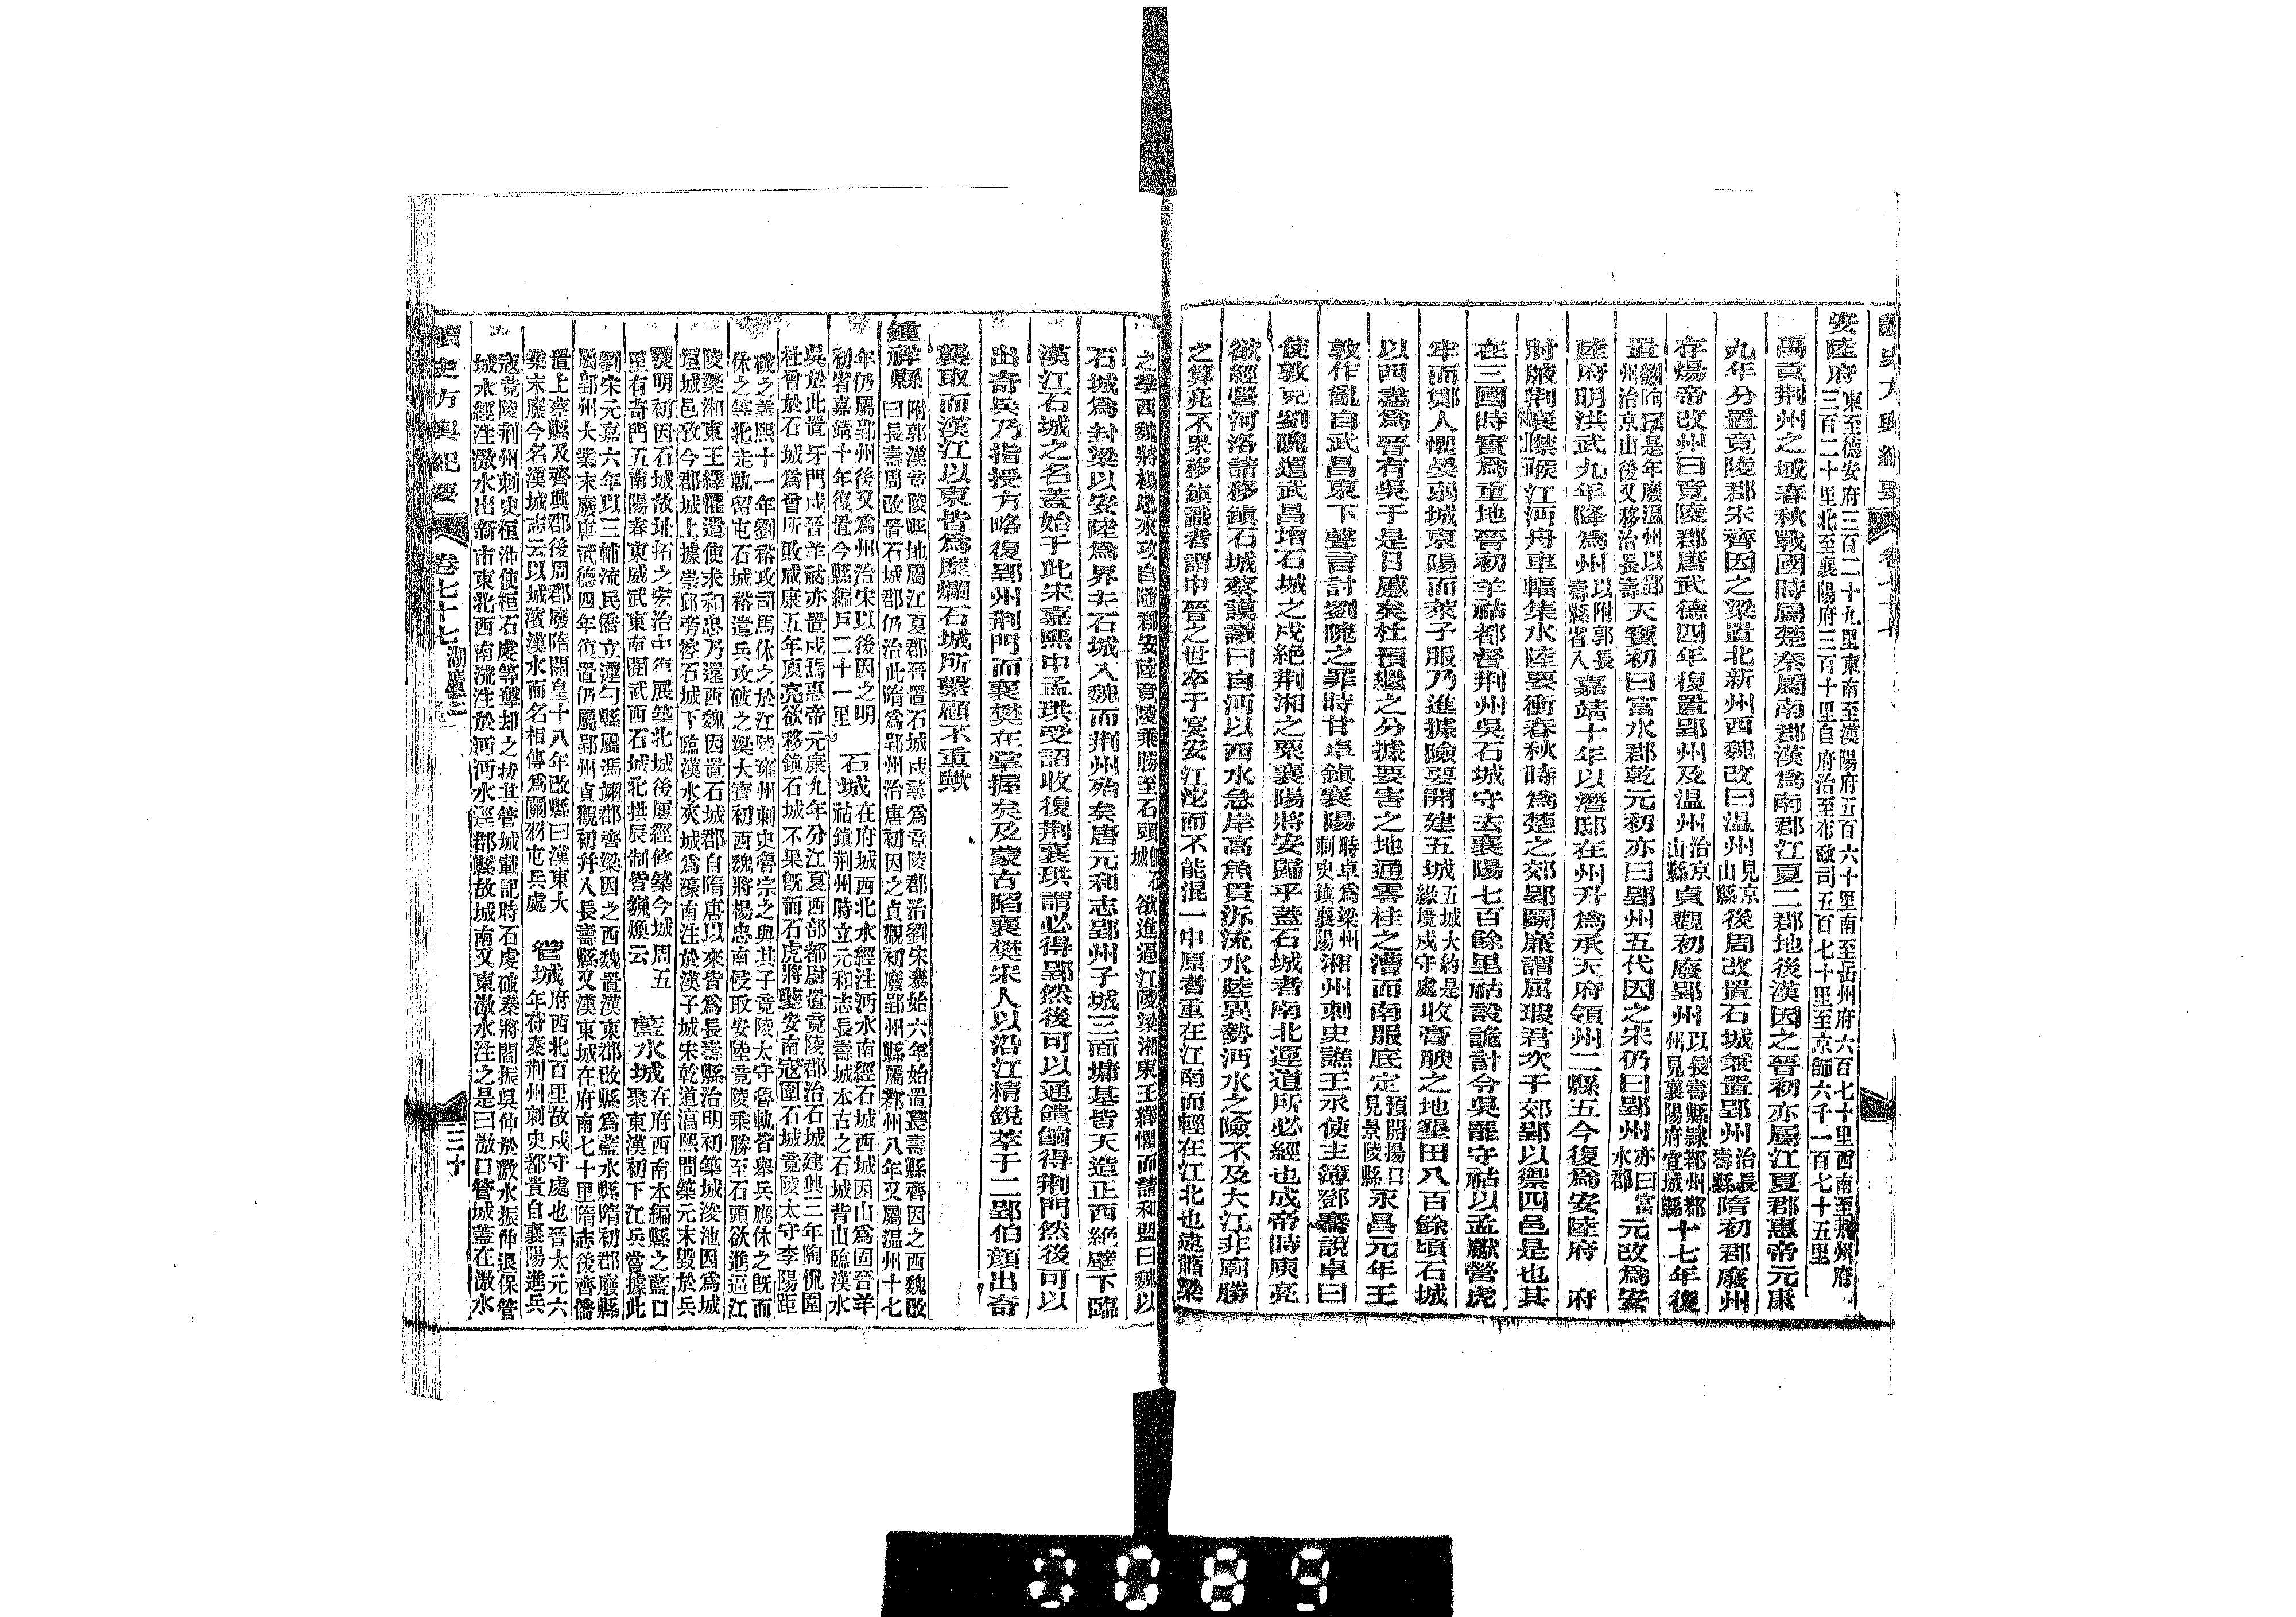 讀史方輿紀要 卷七十七
安陸府東至德安府三百二十九里東南至漢陽府五百六十里南至岳州府六百七十里西南至荆州府
三百二十里北至襄陽府三百十里自府治至布政司五百七十里至京師六千一百七十五里
禹貢荆州之域春秋戰國時屬楚秦屬南郡漢爲南郡江夏二郡地後漢因之晉初亦屬江夏郡惠帝元康
九年分置竟陵郡宋齊因之梁置北新州西魏改曰温州見京山縣後周改置石城兼置郢州治長壽縣隋初郡廢州
存煬帝改州曰竟陵郡唐武德四年復置郢州及温州治京山縣貞觀初廢郢州以長壽縣隸鄀州鄀州見襄陽府宜城縣十七年復
置劉昫曰是年廢温州以郢州治京山後又移治長壽天寶初曰富水郡乾元初亦曰郢州五代因之宋仍曰郢州亦曰富水郡元改爲安
陸府明洪武九年降爲州以附郭長壽縣省入嘉靖十年以潛邸在州升爲承天府領州二縣五今復爲安陸府 府
肘腋荆襄噤喉江沔舟車輻集水陸要衝春秋時爲楚之郊郢鬭廉謂屈瑕君次于郊郢以禦四邑是也其
在三國時實爲重地晉初羊祜都督荆州吳石城守去襄陽七百餘里祜設詭計令吳罷守祜以孟獻營虎
牢而鄭人懼晏弱城東陽而萊子服乃進據險要開建五城五城大約是緣境戍守處收膏腴之地墾田八百餘頃石城
以西盡爲晉有吳于是日蹙矣杜預繼之分據要害之地通零桂之漕而南服底定預開揚口見景陵縣永昌元年王
敦作亂自武昌東下聲言討劉隗之罪時甘卓鎮襄陽時卓爲梁州刺史鎮襄陽湘州刺史譙王氶使主簿鄧騫說卓曰
使敦克劉隗還武昌增石城之戍絶荆湘之粟襄陽將安歸乎蓋石城者南北運道所必經也成帝時庾亮
欲經營河洛請移鎮石城蔡謨議曰自沔以西水急岸高魚貫泝流水陸異勢沔水之險不及大江非廟勝
之算亮不果移鎮識者謂中晉之世卒于宴安江沱而不能混一中原者重在江南而輕在江北也逮蕭梁
之季西魏將楊忠來攻自隨郡安陸竟陵乘勝至石頭 欲進逼江陵梁湘東王繹懼而請和盟曰魏以
石城爲封梁以安陸爲界夫石城入魏而荆州殆矣唐元和志郢州子城三面墉基皆天造正西絶壁下臨
漢江石城之名蓋始于此宋嘉熙中孟珙受詔收復荆襄珙謂必得郢然後可以通饋餉得荆門然後可以
出奇兵乃指授方略復郢州荆門而襄樊在掌握矣及蒙古陷襄樊宋人以沿江精銳萃于二郢伯顔出奇
襲取而漢江以東皆爲糜爛石城所繫顧不重歟
鍾祥縣附郭漢竟陵縣地屬江夏郡晉置石城戍尋爲竟陵郡治劉宋泰始六年始置萇壽縣齊因之西魏改
曰長壽周改置石城郡仍治此隋爲郢州治唐初因之貞觀初廢郢州縣屬鄀州八年又屬温州十七
年仍屬郢州後又爲州治宋以後因之明
初省嘉靖十年復置今縣編戶二十一里 石城在府城西北水經注沔水南經石城西城因山爲固晉羊
祜鎮荆州時立元和志長壽城本古之石城背山臨漢水
吳於此置牙門戍晉羊祜亦置戍焉惠帝元康九年分江夏西部都尉置竟陵郡治石城建興三年陶侃圍
杜曾於石城爲曾所敗咸康五年庾亮欲移鎮石城不果既而石虎將夔安南寇圍石城竟陵太守李陽距
破之義熙十一年劉裕攻司馬休之於江陵雍州刺史魯宗之與其子竟陵太守魯軌皆舉兵應休之既而
休之等北走軌留屯石城裕遣兵攻破之梁大寶初西魏將楊忠南侵取安陸竟陵乘勝至石頭欲進逼江
陵梁湘東王繹懼遣使求和忠乃還西魏因置石城郡自隋唐以來皆爲長壽縣治明初築城浚池因爲城
垣城邑攷今郡城上據崇邱旁控石城下臨漢水夾城爲濠南注於漢子城宋乾道淳熙間築元末毀於兵
燹明初因石城故址拓之宏治中復展築北城後屢經修築今城周五
里有奇門五南陽春東威武東南閱武西石城北拱辰制皆巍煥云 藍水城在府西南本編縣之藍口
聚東漢初下江兵嘗據此
劉宋元嘉六年以三輔流民僑立灄勻縣屬馮翊郡齊梁因之西魏置漢東郡改縣爲藍水縣隋初郡廢縣
屬郢州大業末廢唐武德四年復置仍屬郢州貞觀初幷入長壽縣又漢東城在府南七十里隋志後齊僑
置上蔡縣及齊興郡後周郡廢隋開皇十八年改縣曰漢東大
業末廢今名漢城志云以城濱漢水而名相傳爲關羽屯兵處 管城府西北百里故戍守處也晉太元六
年苻秦荆州刺史都貴自襄陽進兵
寇竟陵荆州刺史桓沖使桓石虔等擊却之拔其管城載記時石虔破秦將閻振吳仲於激水振仲退保管
城水經注激水出新市東北西南流注於沔沔水逕郡縣故城南又東激水注之是曰激口管城蓋在激水
讀史方輿紀要 卷七十七 湖廣三 三十
0089